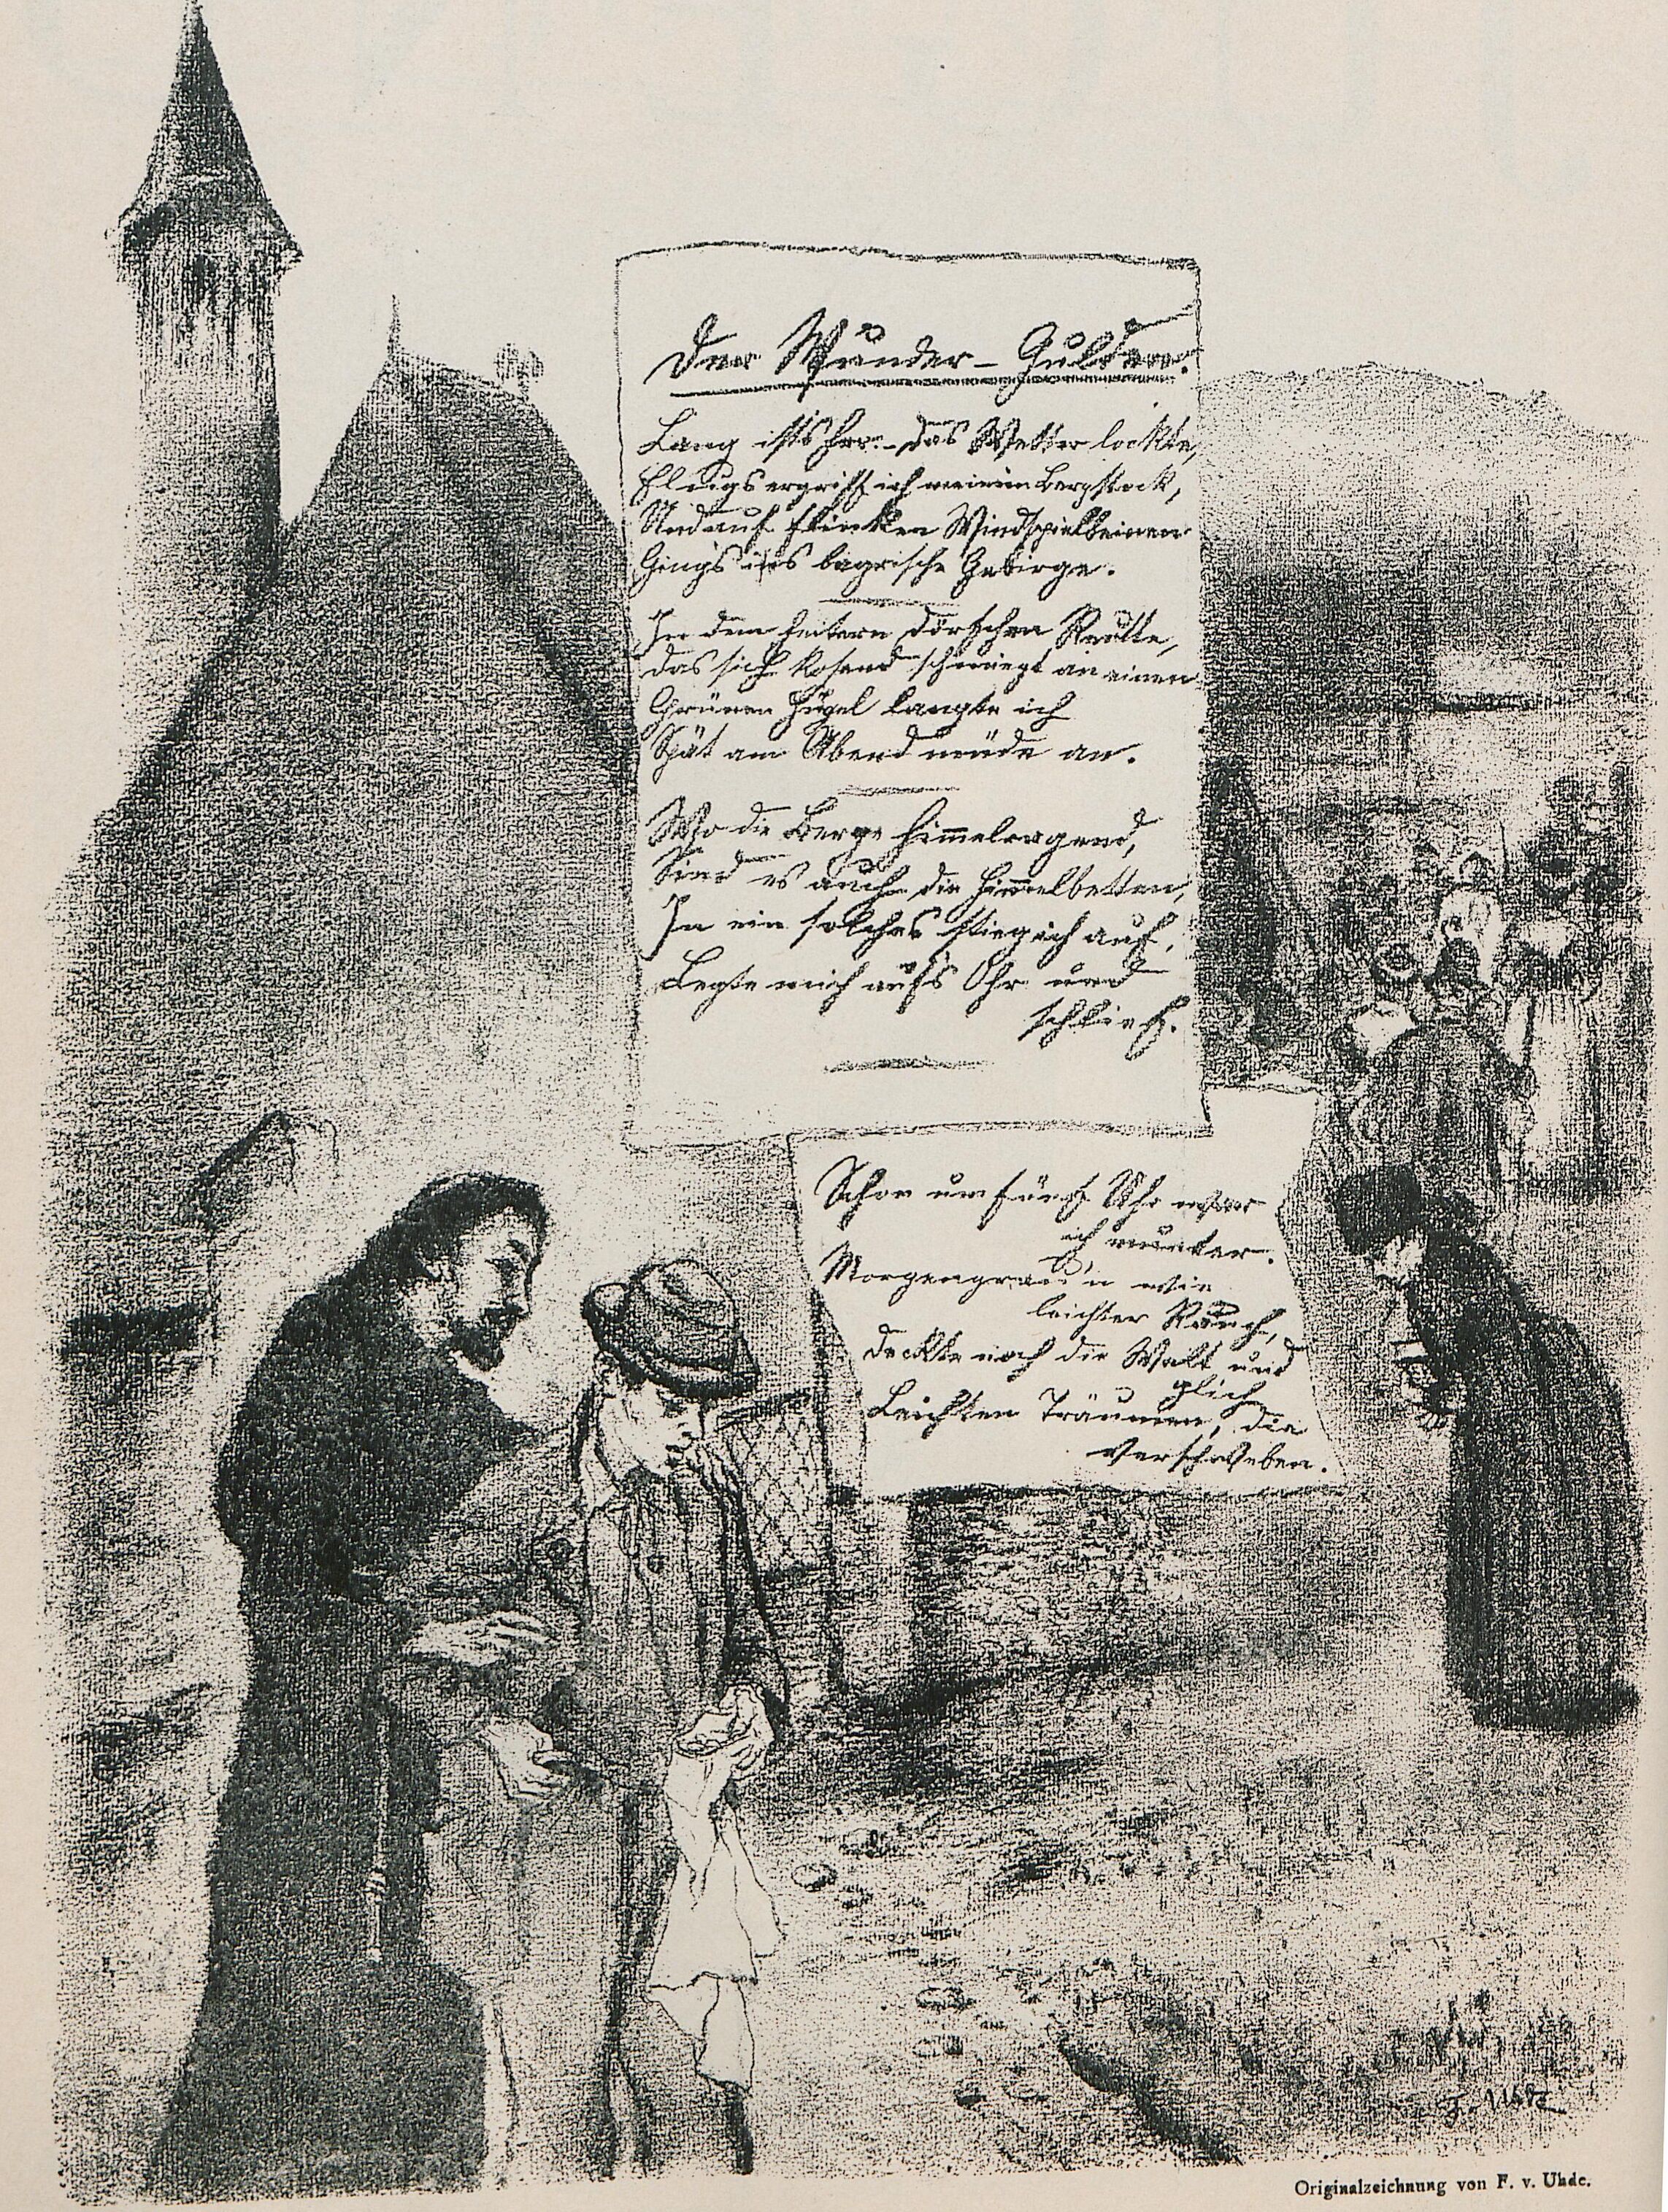 Der Wunder-Gulden.
Lang ist's her. - Das Wetter lockte,
Flugs ergriff ich meinen Bergstock,
Und auf flinken Windspielbeinen
Ging's ins bayrische Gebirge.
In dem heitern Dörfchen Reutte,
Das sich kosend schmiegt an einen
Grünen Hügel langte ich
Spät am Abend müde an.
Wo die Berge himmelragend,
Sind es auch die Himmelbetten,
In ein solches stieg ich auf,
Legte mich auf's Ohr und
schlief.
Schon um fünf Uhr war
ich munter.
Morgengrau'n wie
leichter Rauch,
Deckte noch die Welt und
glich
Leichten Träumen, die
verschweben.
F. Uhde
Originalzeichnung von F. v. Uhde.